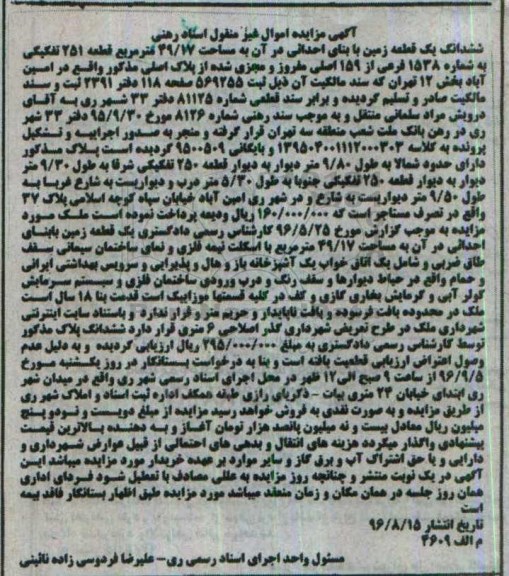 آگهی مزایده اموال غیر منقول اسناد رهنی
ششدانگ یک قطعه زمین با بنای احداثی در آن به مساحت ۴۹/۱۷ مترمربع قطعه ۲۵۱ تفکیکی
به شماره ۱۵۳۸ فرعی از ۱۵۹ اصلی مفروز و مجزی شده از پلاک اصلی مذکور واقع در امین
آباد بخش ۱۲ تهران که سند مالکیت آن ذیل ثبت ۵۶۹۲۵۵ صفحه ۱۱۸ دفتر ۲۳۹۱ ثبت و سند
مالکیت صادر و تسلیم گردیده و برابر سند قطعی شماره ۸۱۱۲۵ دفتر ۳۳ شهر ری به آقای
درویش مراد سلمانی منتقل و به موجب سند رهنی شماره ۸۱۲۶ مورخ ۹۵/۹/۳۰ دفتر ۳۳ شهر
ری در رهن بانک ملت شعب منطقه سه تهران قرار گرفته و منجر به صدور اجراییه و تشکیل
پرونده به کلاسه ۱۳۹۵۰۴۰۰۱۱۱۲۰۰۰۳۰۳ و بایگانی ۹۵۰۰۵۰۹ گردیده است پلاک مذکور
دارای حدود شمالا به طول ۹/۸۰ متر دیوار به دیوار قطعه ۲۵۰ تفکیکی شرقا به طول ۹/۳۰ متر
دیوار به دیوار قطعه ۲۵۰ تفکیکی جنوبا به طول ۵/۳۰ متر درب و دیواریست به شارع غربا به
طول ۹/۵۰ متر دیواریست به شارع و در شهر ری امین آباد خیابان سپاه کوچه اسلامی پلاک ۳۷
واقع در تصرف مستاجر است که ۱۶۰/۰۰۰/۰۰۰ ریال ودیعه پرداخت نموده است ملک مورد
مزایده به موجب گزارش مورخ ۹۶/۵/۲۵ کارشناس رسمی دادگستری یک قطعه زمین بابنای
احداثی در آن به مساحت ۴۹/۱۷ مترمربع با اسکلت نیمه فلزی و نمای ساختمان سیمانی سقف
طاق ضربی و شامل یک اتاق خواب یک آشپزخانه باز و هال و پذیرایی و سرویس بهداشتی ایرانی
و حمام واقع در حیاط دیوارها و سقف رنگ و درب ورودی ساختمان فلزی و سیستم سرمایش
کولر آبی و گرمایش بخاری گازی و کف در کلیه قسمتها موزاییک است قدمت بنا ۱۸ سال است
ملک در محدوده بافت فرسوده و بافت ناپایدار و حریم مترو قرار ندارد و باستناد سایت اینترنتی
شهرداری ملک در طرح تعریض شهرداری گذر اصلاحی ۶ متری قرار دارد ششدانگ پلاک مذکور
توسط کارشناس رسمی دادگستری به مبلغ ۲۹۵/۰۰۰/۰۰۰ ریال ارزیابی گردیده و به دلیل عدم
وصول اعتراض ارزیابی قطعیت یافته است و بنا به درخواست بستانکار در روز یکشنبه مورخ
۹۶/۹/۵ از ساعت ۹ صبح الی ۱۲ ظهر در محل اجرای اسناد رسمی شهر ری واقع در میدان شهر
ری ابتدای خیابان ۲۴ متری بیات - ذکریای رازی طبقه همکف اداره ثبت اسناد و املاک شهر ری
از طریق مزایده و به صورت نقدی به فروش خواهد رسید مزایده از مبلغ دویست و نودو پنج
میلیون ریال معادل بیست و نه میلیون پانصد هزار تومان آغاز و به دهنده بالاترین قیمت
پیشنهادی واگذار میگردد هزینه های انتقال و بدهی های احتمالی از قبیل عوارض شهرداری و
دارایی و یا حق اشتراک آب و برق گاز و سایر موارد بر عهده خریدار مورد مزایده میباشد این
آگهی در یک نوبت منتشر و چنانچه روز مزایده به عللی مصادف با تعطیل شود فردای اداری
همان روز جلسه در همان مکان و زمان منعقد میباشد مورد مزایده طبق اظهار بستانکار فاقد بیمه
است
تاریخ انتشار ۹۶/۸/۱۵
م الف ۴۶۰۹
مسئول واحد اجرای اسناد رسمی ری-علیرضا فردوسی زاده نائینی